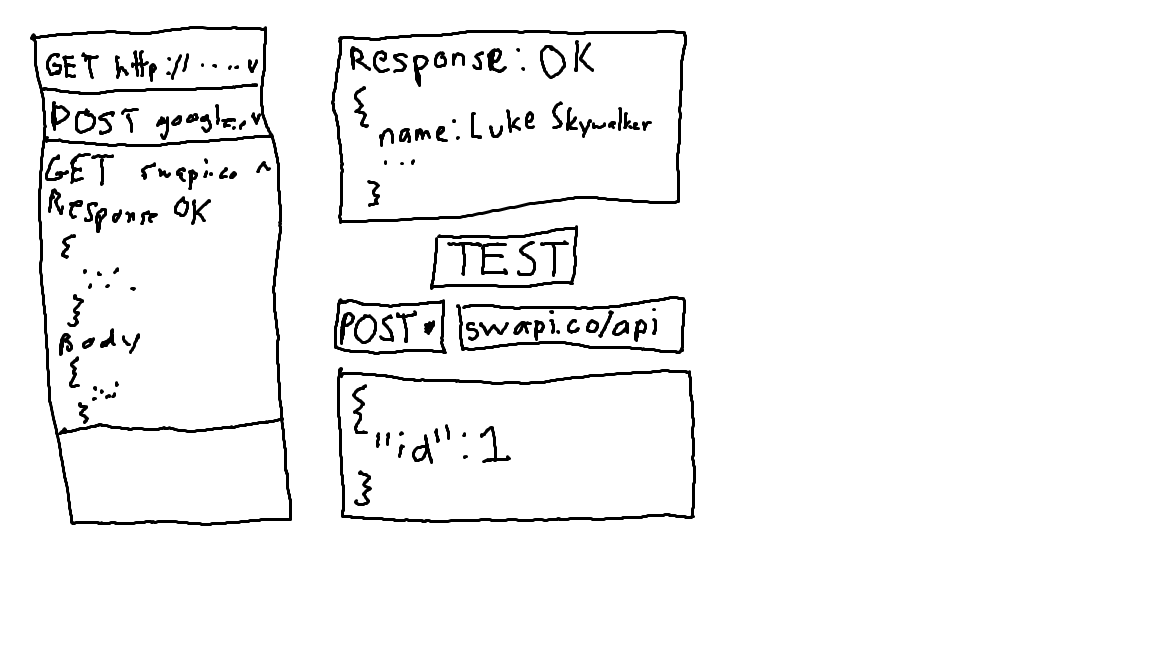 GET http://.... v
POST google... v
GET swapi.co ^
Response OK
{
......
}
Body
{
.....
}
Response: OK
{
name: Luke Skywalker
...
}
TEST
POST ▾ swapi.co/api
{
"id": 1
}